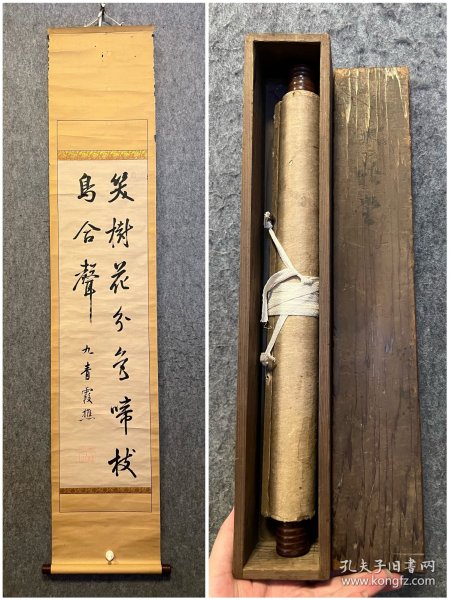 笑樹花分色啼枝
鳥合聲
九青霞樵
孔夫子旧书网
www.kongfz.com